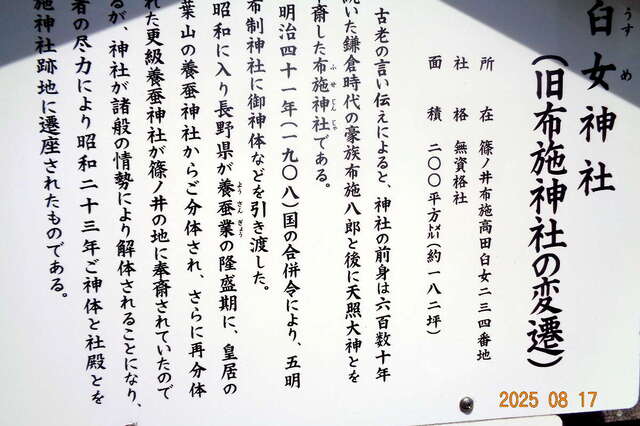 臼女神社
うすめ
(旧布施神社の変遷)
所在 篠ノ井布施高田臼女二三四番地
社格 無資格社
面積 二〇〇平方㍍(約一八二坪)
古老の言い伝えによると、神社の前身は六百数十年
続いた鎌倉時代の豪族布施八郎と後に天照大神とを
斎した布施神社である。
明治四十一年(一九〇八)国の合併令により、五明
布制神社に御神体などを引き渡した。
昭和に入り長野県が養蚕業の隆盛期に、皇居の
ようさんぎょう
葉山の養蚕神社からご分体され、さらに再分体
れた更級養蚕神社が篠ノ井の地に奉斎されていたので
るが、神社が諸般の情勢により解体されることになり、
者の尽力により昭和二十三年ご神体と社殿とを
施神社跡地に遷座されたものである。
2025 08 17